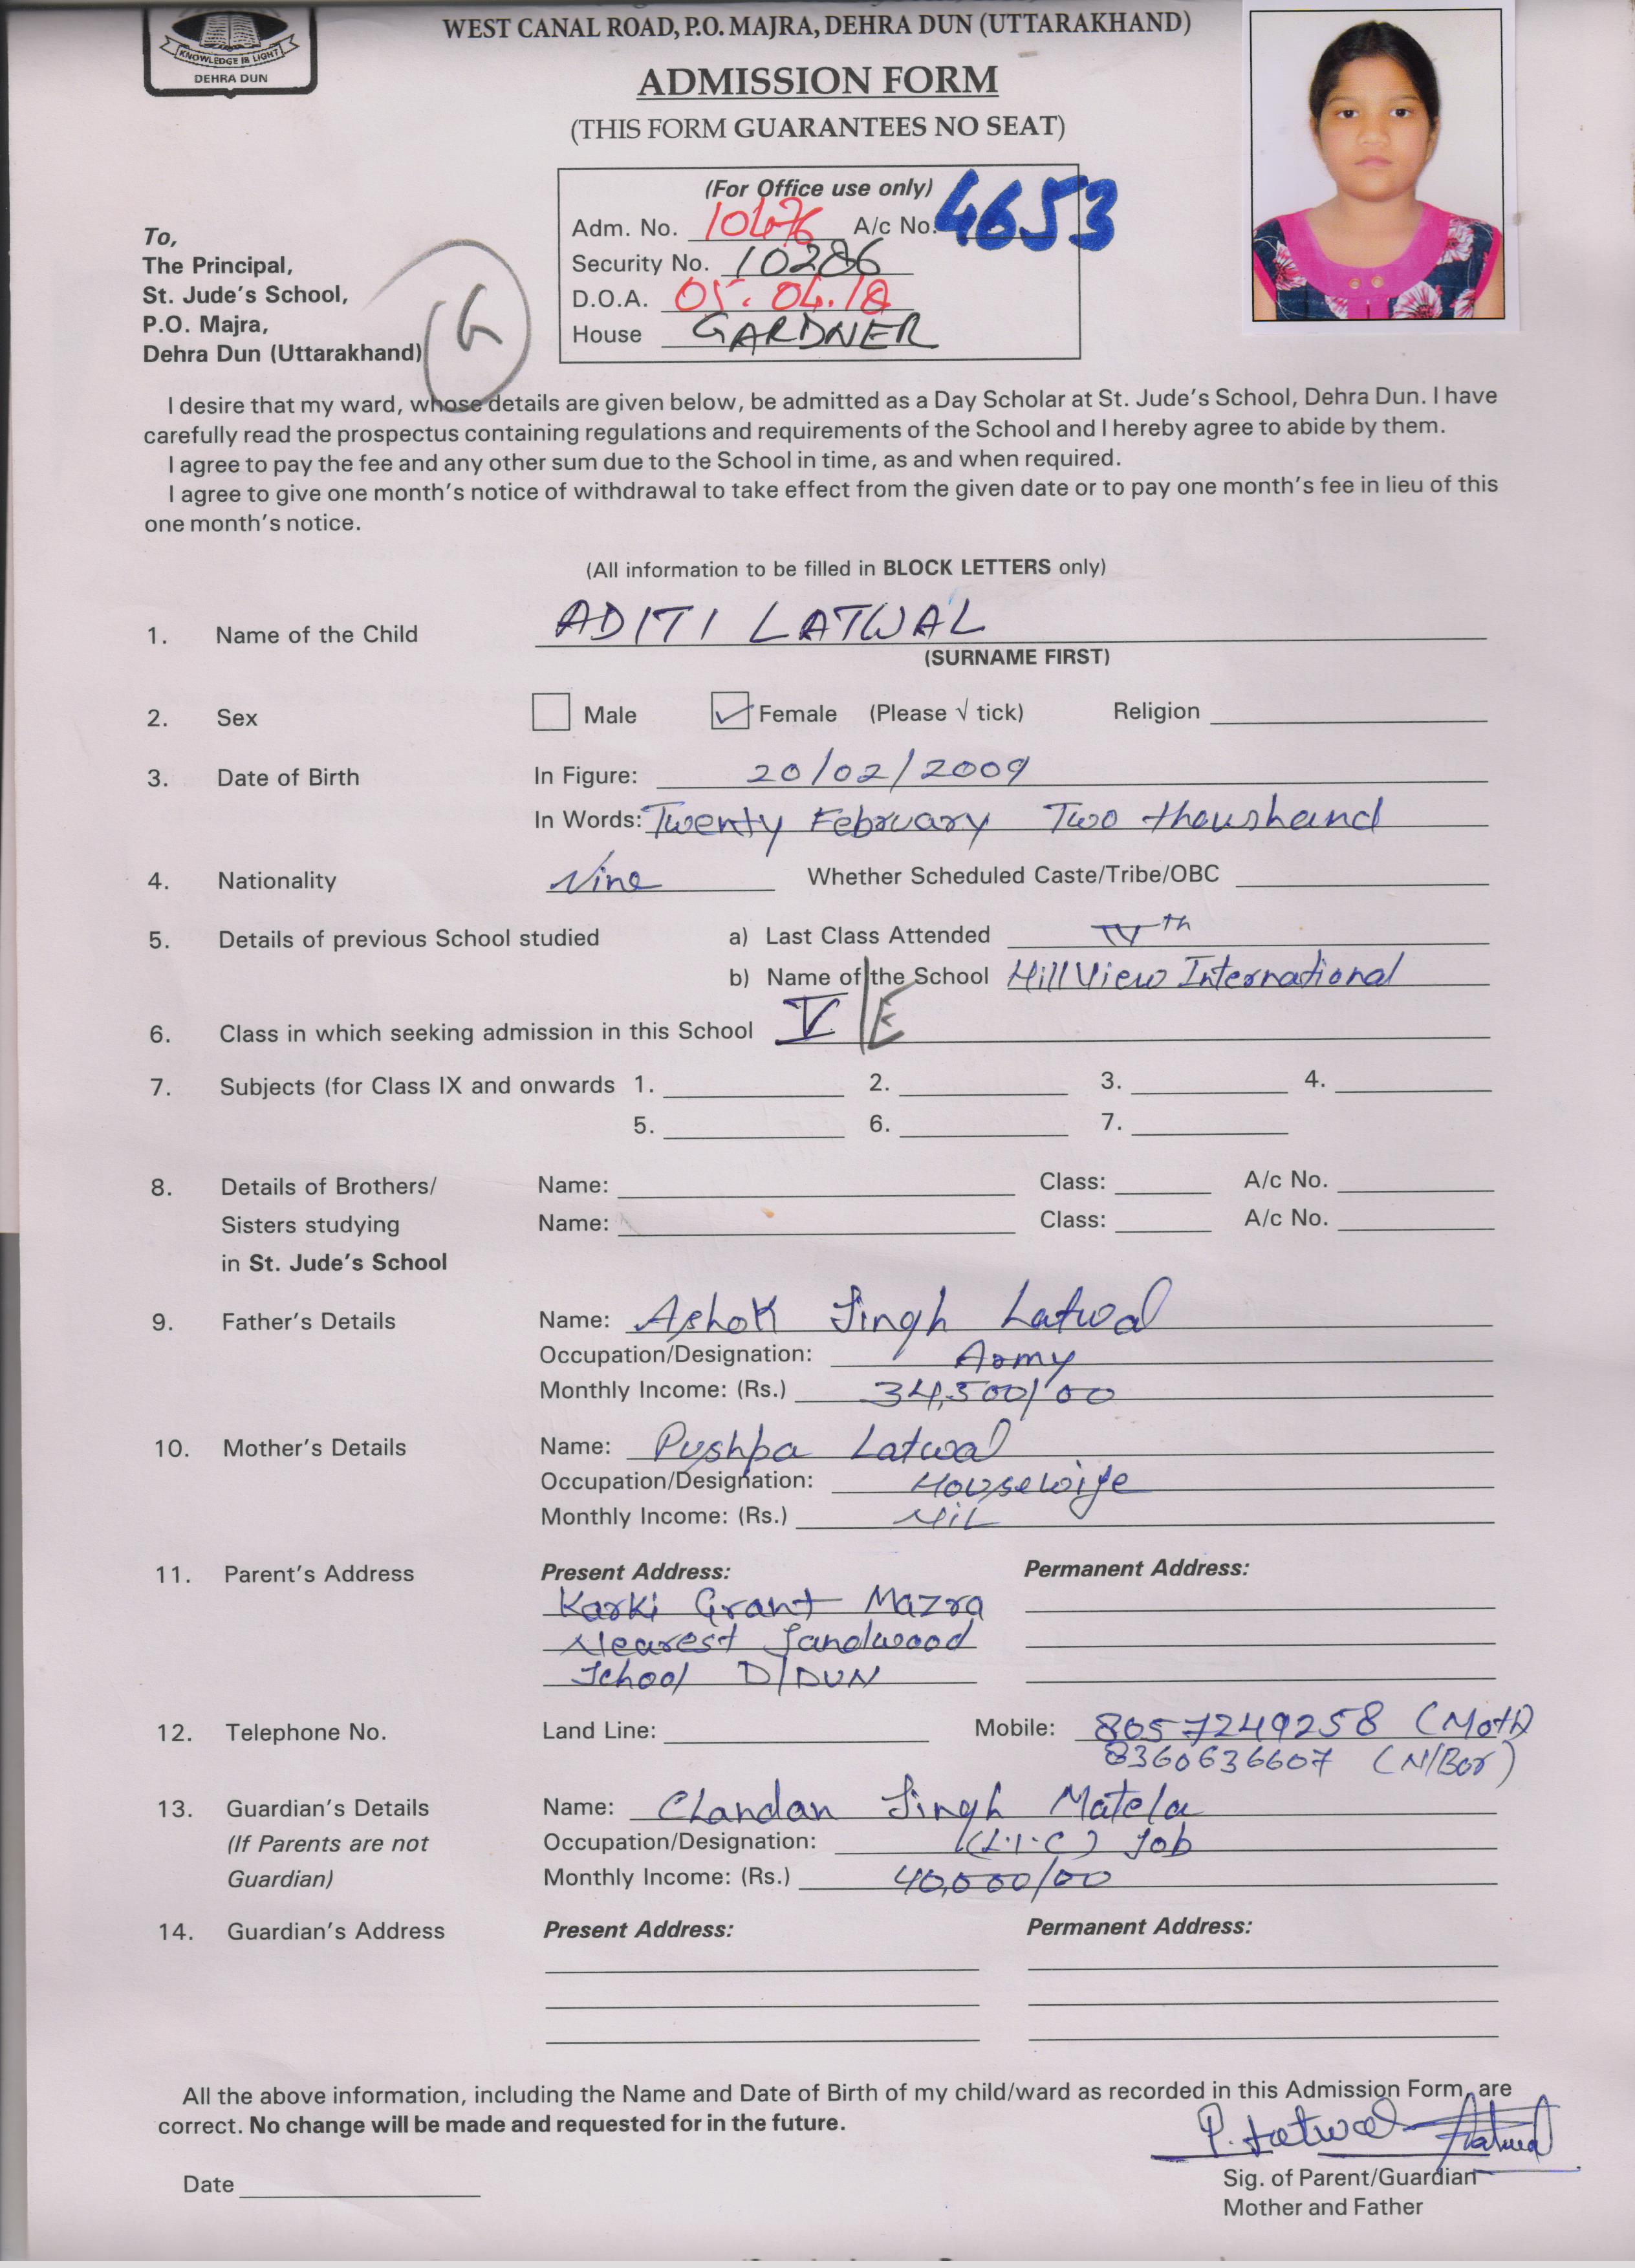 KNOWLEDGE IS LIGHT
DEHRA DUN
WEST CANAL ROAD, P.O. MAJRA, DEHRA DUN (UTTARAKHAND)
ADMISSION FORM
(THIS FORM GUARANTEES NO SEAT)
(For Office use only)
Adm. No. 10476 A/c No. 4653
Security No. 10286
D.O.A. 05.04.18
House GARDNER
To,
The Principal,
St. Jude's School,
P.O. Majra,
Dehra Dun (Uttarakhand)
G
I desire that my ward, whose details are given below, be admitted as a Day Scholar at St. Jude's School, Dehra Dun. I have
carefully read the prospectus containing regulations and requirements of the School and I hereby agree to abide by them.
I agree to pay the fee and any other sum due to the School in time, as and when required.
I agree to give one month's notice of withdrawal to take effect from the given date or to pay one month's fee in lieu of this
one month's notice.
(All information to be filled in BLOCK LETTERS only)
1. Name of the Child ADITI LATWAL
(SURNAME FIRST)
2. Sex Male Female (Please √ tick) Religion
3. Date of Birth In Figure: 20/02/2009
In Words: Twenty February Two thoushand
4. Nationality Nine Whether Scheduled Caste/Tribe/OBC
5. Details of previous School studied a) Last Class Attended IVth
b) Name of the School Hill View International
6. Class in which seeking admission in this School V/E
7. Subjects (for Class IX and onwards 1. 2. 3. 4.
5. 6. 7.
8. Details of Brothers/ Name: Class: A/c No.
Sisters studying Name: Class: A/c No.
in St. Jude's School
9. Father's Details Name: Ashok Singh Latwal
Occupation/Designation: Army
Monthly Income: (Rs.) 34,500/00
10. Mother's Details Name: Pushpa Latwal
Occupation/Designation: Housewife
Monthly Income: (Rs.) NiL
11. Parent's Address Present Address: Permanent Address:
Karki Grant Mazra
Nearest Sandwood
School D/DUN
12. Telephone No. Land Line: Mobile: 8057249258 (Moth)
8360636607 (N/Bor)
13. Guardian's Details Name: Chandan Singh Matela
(If Parents are not Occupation/Designation: (L.I.C) Job
Guardian) Monthly Income: (Rs.) 40,000/00
14. Guardian's Address Present Address: Permanent Address:
All the above information, including the Name and Date of Birth of my child/ward as recorded in this Admission Form, are
correct. No change will be made and requested for in the future.
P. Latwal
Date
Sig. of Parent/Guardian
Mother and Father